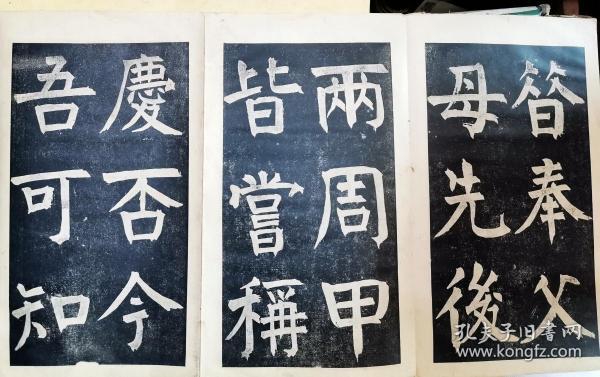 奉父
母先後
兩周甲
皆嘗稱
慶否今
吾可知
孔夫子旧书网
www.kongfz.com